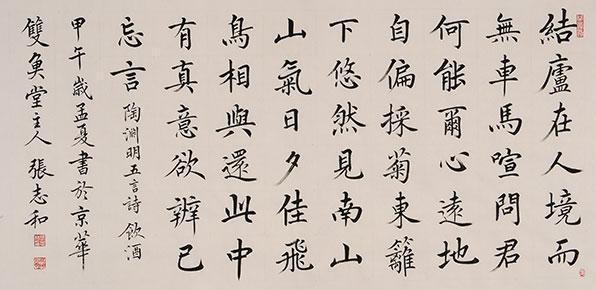 結廬在人境而
無車馬喧問君
何能爾心遠地
自偏採菊東籬
下悠然見南山
山氣日夕佳飛
鳥相與還此中
有真意欲辨已
忘言 陶淵明五言詩 飲酒
甲午歲孟夏書於京華
雙魚堂主人張志和